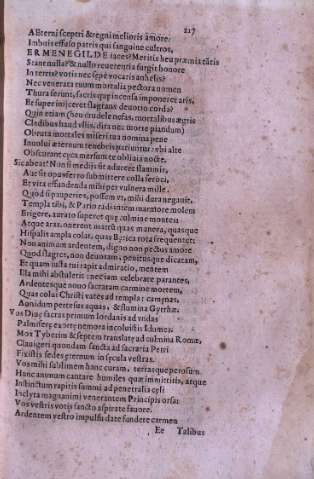 217
AEterni sceptri & regni melioris amore:
Imbuit effuso patris qui sanguine cultros,
ERMENEGILDE iaces? Meritis heu præmia
Stant nulla? & nulla reuerentia surgit honore
In terris? votis nec sæpè vocaris anhelis?
Nec venerata tuum mortalia pectora nomen
Thura ferunt, sacris quæ incensa imponere aris,
Et super inijceret flagrans deuotio corda?
Quin etiam (heu crudele nefas, mortalibus ægris
Cladibus haud vllis, dira nec morte piandum)
Obruta mortales miseri tua nomina pene
Inuolui æternum tenebris patiuntur, alte
Obscurant, mersumt obliuia nocte.
Sic abeat? Non si medijs sit adacer flammis,
Aut sit opus ferro submittere colla feroci,
Et vita effundenda mihi per vulnera mille.
Quod si pauperies, possem vt, mihi dura negasset,
Templa tibi, & Pario radiantem marmore molem
Erigere, aurato superet quæ culmine montem
Atque aras, onerent matris quas munera, quasque
Hispalis ampla colat, quas Bætica tota frequentet:
Non animum ardentem, digno non pectus amore
Quod flagret, non deuotam, penitusque dicatam,
Et quam iusta tui rapit admiratio, mentem
Illa mihi abstulerit: necciam celebrate parantes,
Ardentesque nouo sacratam carmine mortem,
Quas colui Christi vates ad templa: camœnas,
Agnidum petite aquas, & flumina Gyrthæ.
Vos Diuæ sacras primum Iordanis ad vndas
Palmifero ex ore nemora incoluistis Idumes.
Mox Tyberim & septem translatæ ad culmina Romæ,
Clauigeri quondam sancta ad sacraria Petri
Fixistis sedes æternum in secula vestras.
Vos mihi sublimem hunc curam, terrasque perosum
Hanc animum cantare humiles quæ immittitis, atque
Instinctum rapitis summi ad penetralia cœli
Inclyta magnanimi venerantem Principis orsa:
Vos vestris votis sancto aspirate fauore.
Ardentem vestro impulsu date fundere carmen
Ee Talibus